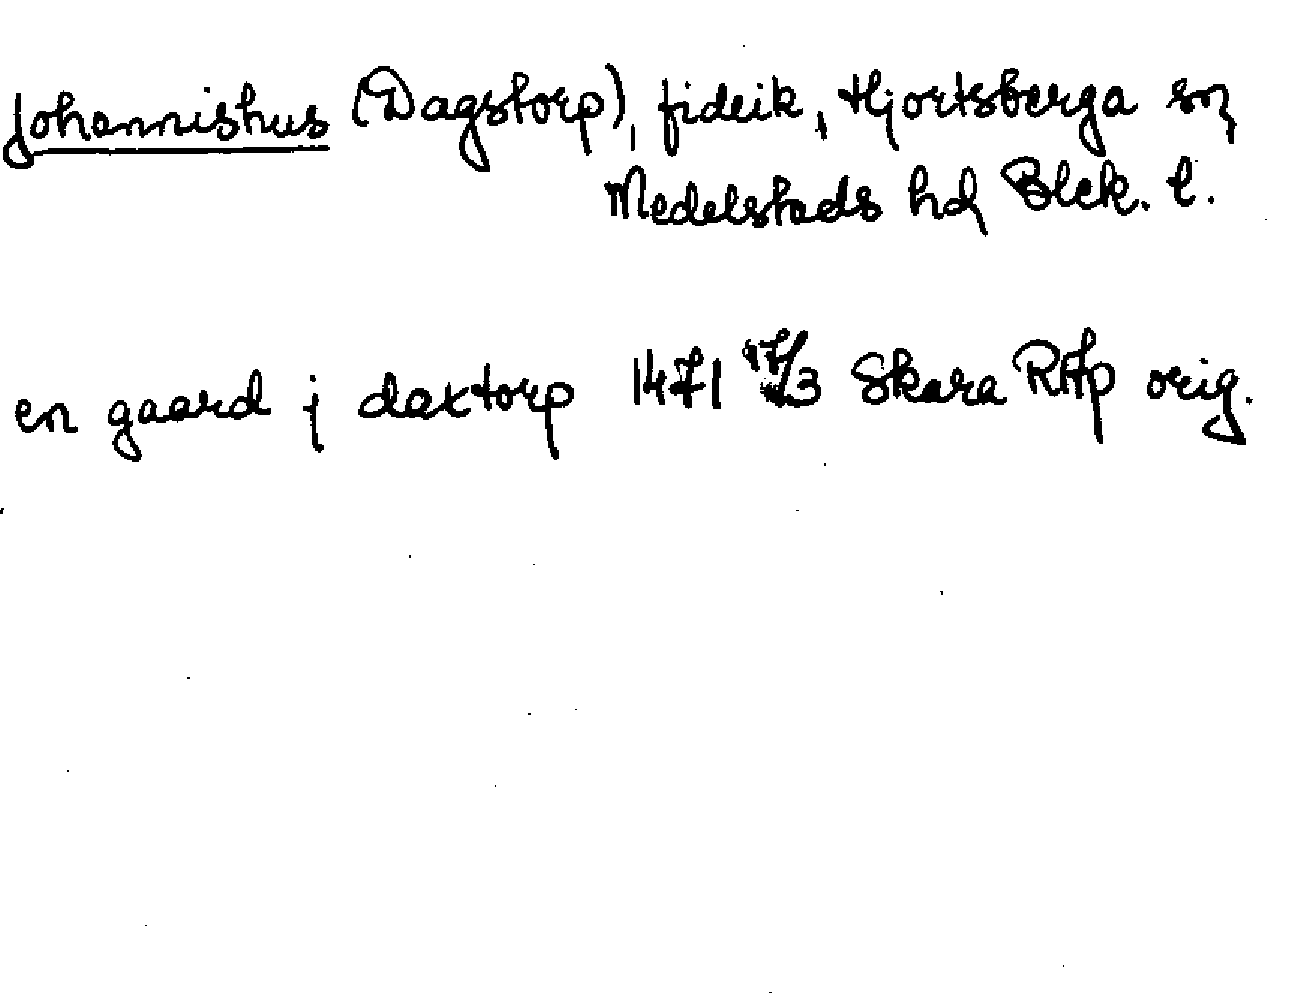 Johannishus (Dagstorp), fideik, Hjortsberga sn,
Medelstads hd, Blek. l.
en gaard j daxtorp 1471 17/3 Skara RAp orig.